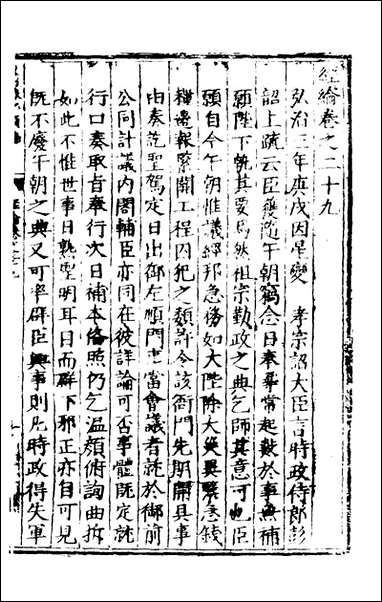 經綸卷之二十九
弘治三年庚戌因星變 孝宗詔大臣言時政侍郎彭
韶上疏云臣幾隨午朝竊念日奉尋常起數於事無補
願陛下執其要焉然祖宗勤政之典乞師其意可也臣
願自今午朝惟議經邦急務如大陞除大災異緊急錢
糧邊報緊關工程囚犯之類許令該衙門先期開具事
由奏訖聖駕定日出御左順門 當會議者就於御前
公同計議內閣輔臣亦同在彼詳論可否事體既定就
行口奏取旨奉行次日補本備照仍乞溫顏俯詢曲折
如此不惟世事日熟聖明耳目而群下邪正亦自可見
既不廢午朝之典又可率群臣興事則凡時政得失軍